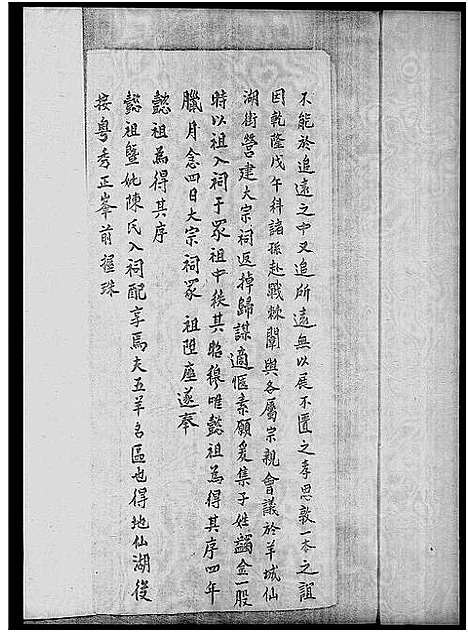 不能於追遠之中又追所遠無以展不匱之孝思敦一本之誼
因乾隆戊午科諸孫赴戰棘闈與各屬宗親會議於羊城仙
湖街營建大宗祠返掉歸謀適愜素願爰集子姓蠲金一股
時以祖入祠于眾祖中按其昭穆唯懿祖為得其序四年
臘月念四日大宗祠眾祖陞座遂奉
懿祖為得其序
懿祖暨妣陳氏入祠配享焉夫五羊名區也得地仙湖後
接粵秀正峯前握珠